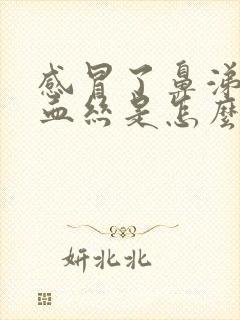 感冒了鼻涕
血丝是怎麼
妍北北